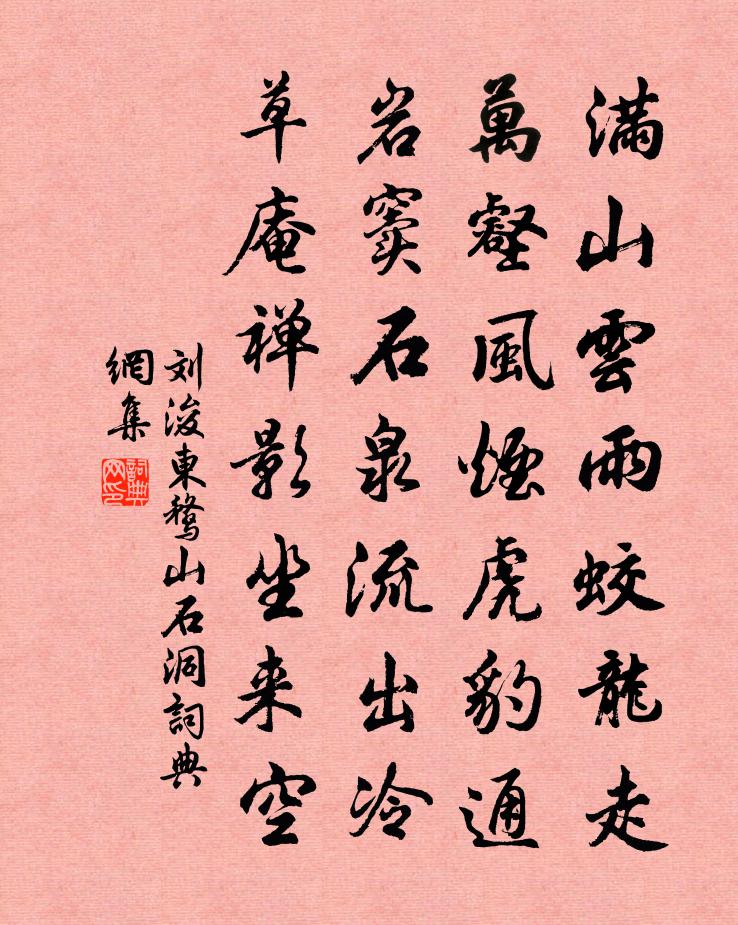 滿山雲雨蛟龍走
萬壑風煙虎豹通
岩窦石泉流出冷
草庵禅影坐来空
刘浚東鶩山石洞詞典
網集
詞典
网印